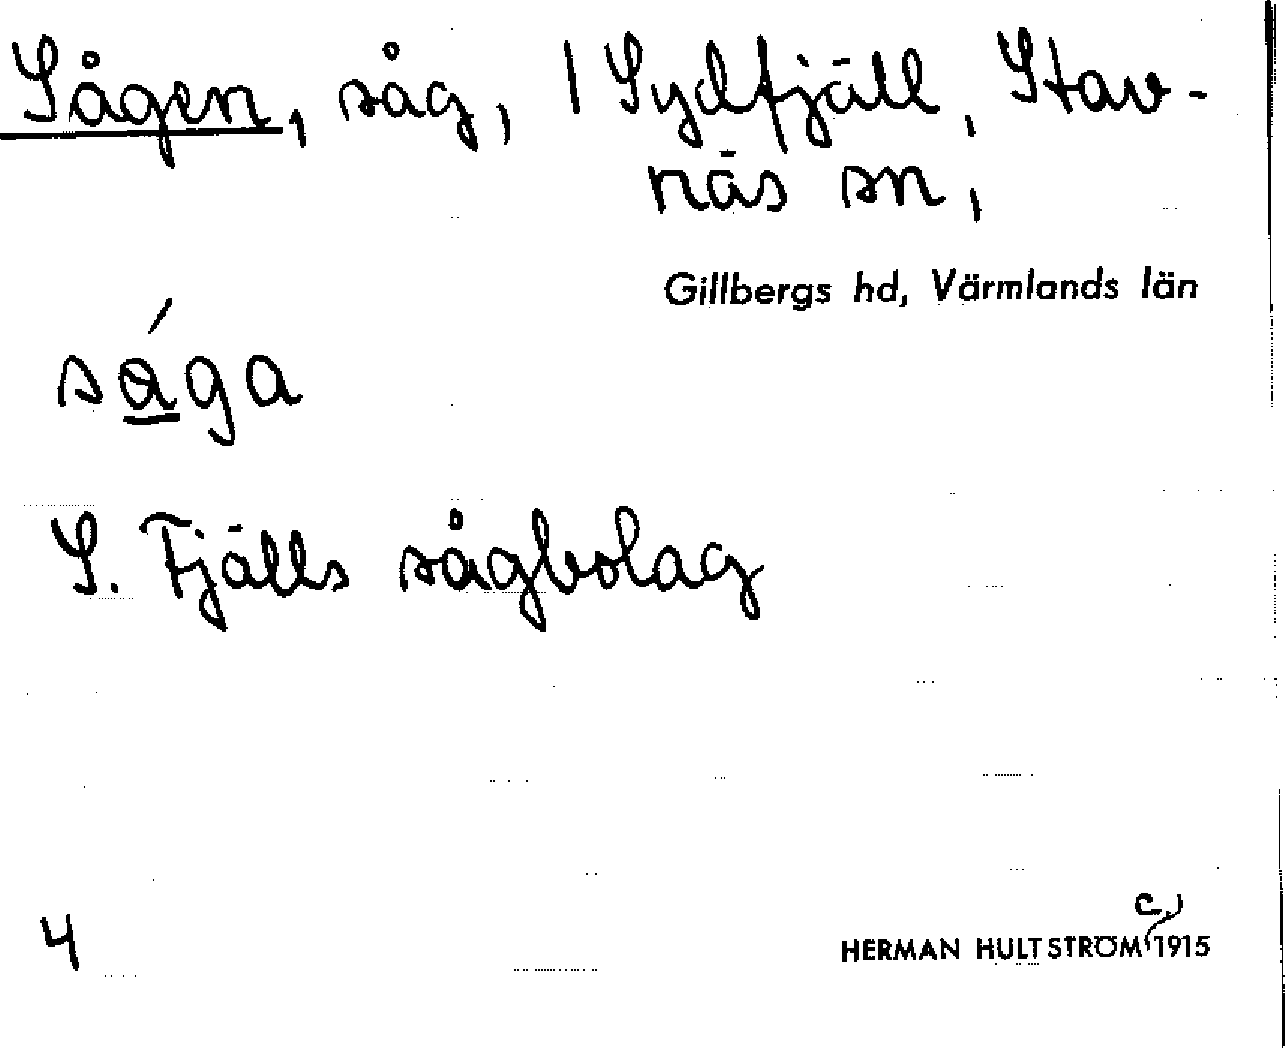 Sågen, såg, 1 Sydfjäll, Stav-
näs sn,
Gillbergs hd, Värmlands län
sága
S. Fjälls sågbolag
4
c.
HERMAN HULTSTRÖM 1915